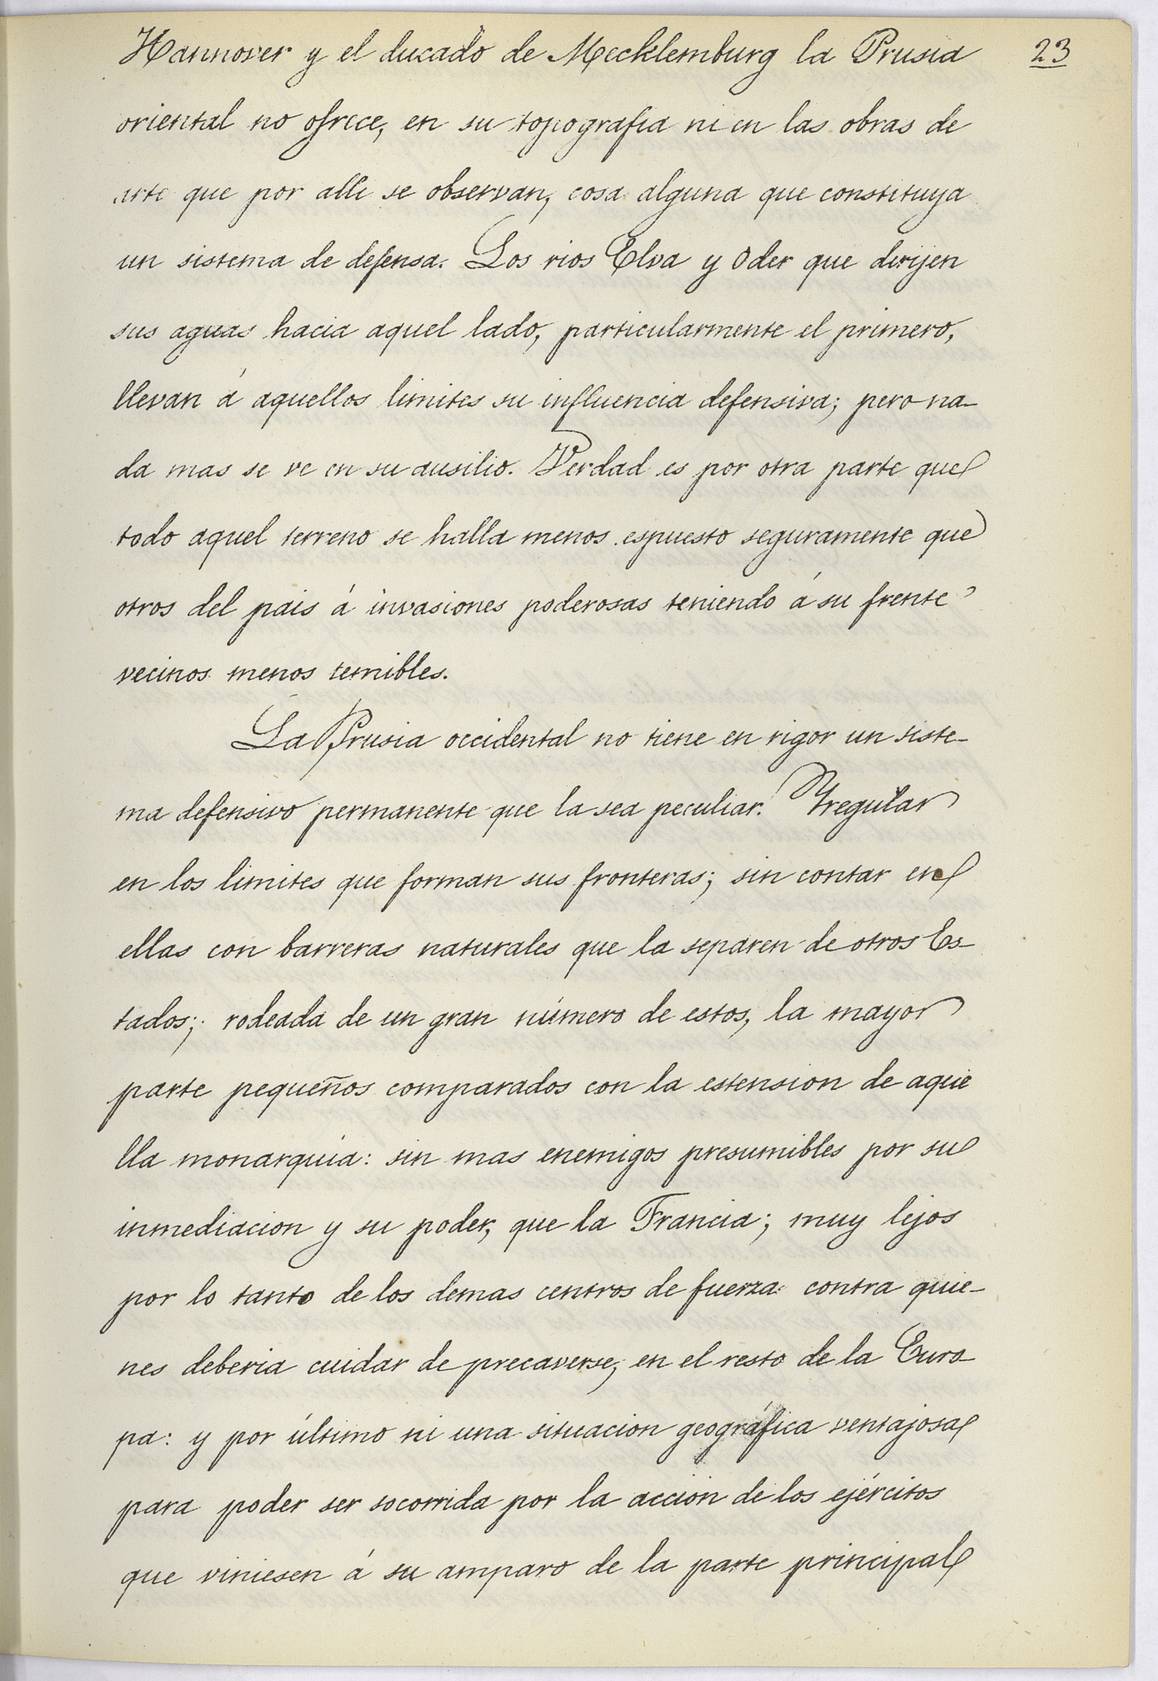 Hannover y el ducado de Mecklemburg la Prusia 23
oriental no ofrece, en su topografia ni en las obras de
arte que por alli se observan, cosa alguna que constituya
un sistema de defensa. Los rios Elva y Oder que dirijen
sus aguas hacia aquel lado, particularmente el primero,
llevan á aquellos limites su influencia defensiva; pero na-
da mas se ve en su ausilio. Verdad es por otra parte que
todo aquel terreno se halla menos espuesto seguramente que
otros del pais á invasiones poderosas teniendo á su frente
vecinos menos temibles.
La Prusia occidental no tiene en rigor un siste-
ma defensivo permanente que la sea peculiar. Yrregular
en los limites que forman sus fronteras; sin contar en
ellas con barreras naturales que la separen de otros Es-
tados; rodeada de un gran número de estos, la mayor
parte pequeños comparados con la estension de aque
lla monarquia: sin mas enemigos presumibles por su
inmediacion y su poder, que la Francia; muy lejos
por lo tanto de los demas centros de fuerza contra quie-
nes deberia cuidar de precaverse, en el resto de la Euro-
pa: y por último ni una situacion geográfica ventajosa
para poder ser socorrida por la acción de los ejércitos
que viniesen á su amparo de la parte principal